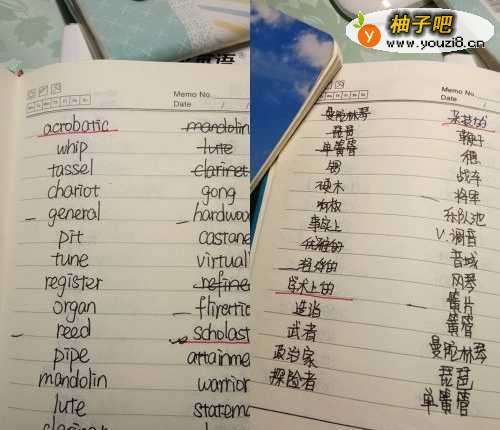 柚子吧
www.youzi8.cn
Memo No.
Date / /
acrobatic
whip
tassel
chariot
general
pit
tune
register
organ
reed
pipe
mandolin
lute
mandolin
lute
clarinet
gong
hardwoo
castane
virtuall
refine
scholast
attainme
warrior
statem
Memo No.
Date / /
曼陀林琴
琵琶
单簧管
锣
硬木
响板
事实上
学术上的
造诣
武者
政治家
探险者
杂技的
鞭子
穗
战车
将军
乐队池
V.调音
音域
风琴
簧片
簧管
曼陀林琴
琵琶
单簧管